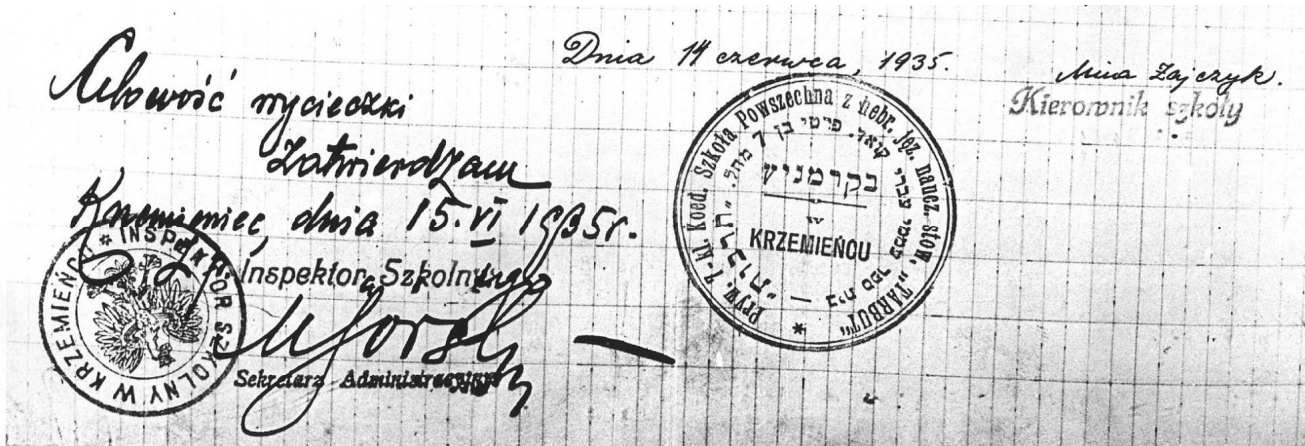 Dnia 14 czerwca, 1935.
Zajczyk.
Kierownik szkoły
Celowość wycieczki
Zatwierdzam
Krzemieniec, dnia 15.VI 1935r.
Inspektora Szkolnego
Sekretarz Administracyjny
* INSPEKTOR SZKOLNY W KRZEMIEŃCU
Pryw. 7-kl. Koed. Szkoła Powszechna z hebr. jęz. naucz. stow. "TARBUT" *
בית ספר עממי עברי קואד. פרטי בן 7 מחל. "תרבות" —
בקרמניץ
w
KRZEMIEŃCU